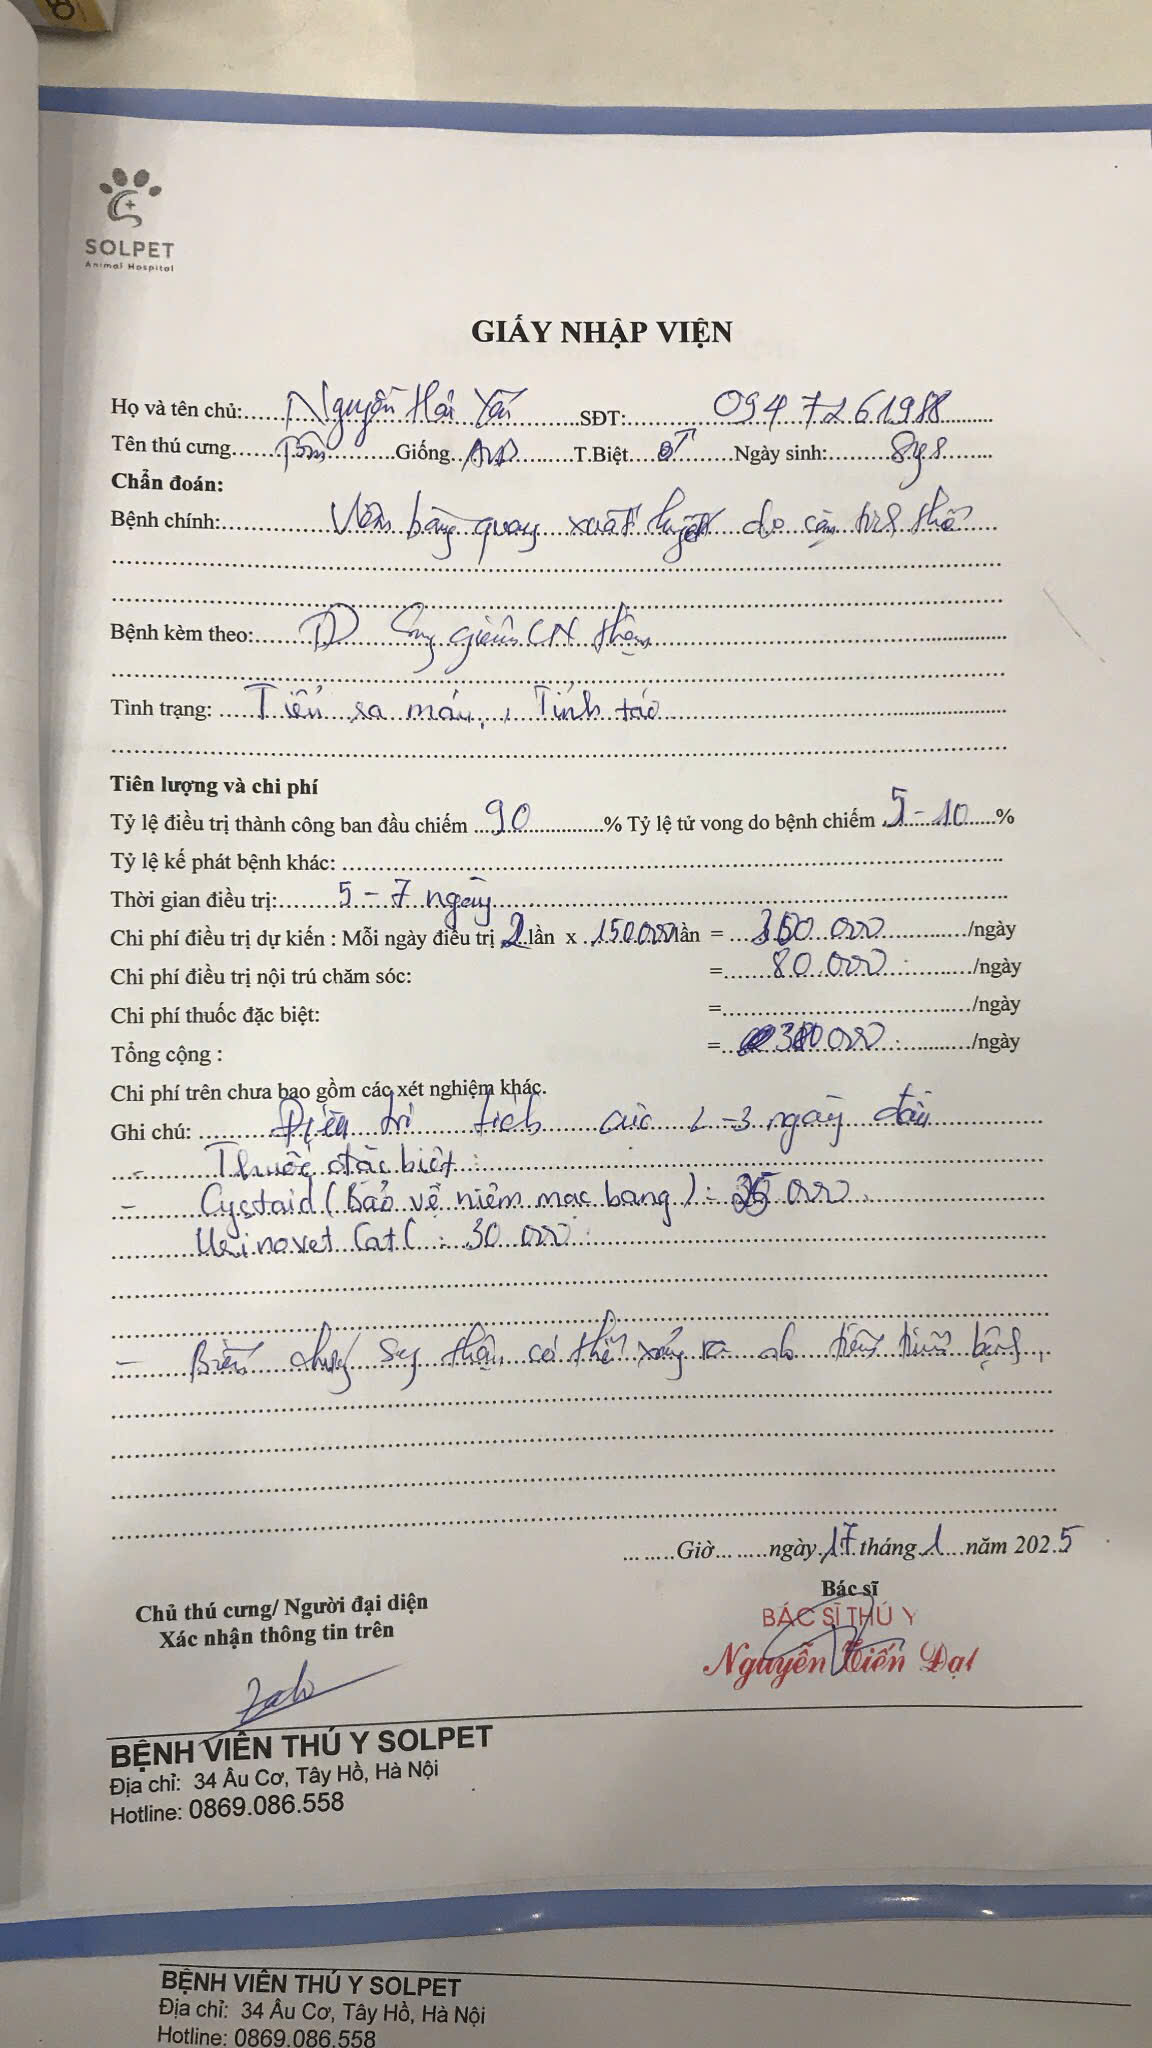 SOLPET
Animal Hospital
GIẤY NHẬP VIỆN
Họ và tên chủ: Nguyễn Hải Yến SĐT: 0947261988
Tên thú cưng Giống ALD T.Biệt ♂ Ngày sinh: 8ys
Chẩn đoán:
Bệnh chính: Viêm bàng quang xuất huyết do cặn tinh thể
Bệnh kèm theo: TD Suy giảm CN thận
Tình trạng: Tiểu ra máu, Tỉnh táo
Tiên lượng và chi phí
Tỷ lệ điều trị thành công ban đầu chiếm 90 % Tỷ lệ tử vong do bệnh chiếm 5-10 %
Tỷ lệ kế phát bệnh khác:
Thời gian điều trị: 5-7 ngày
Chi phí điều trị dự kiến : Mỗi ngày điều trị 2 lần x 150000 lần = 300 000 /ngày
Chi phí điều trị nội trú chăm sóc: = 80.000 /ngày
Chi phí thuốc đặc biệt: = /ngày
Tổng cộng : = 380 000 /ngày
Chi phí trên chưa bao gồm các xét nghiệm khác.
Ghi chú: Điều trị tích cực 2-3 ngày đầu
- Thuốc đặc biệt :
- Cystaid (Bảo vệ niêm mạc bang) : 000
Urinovet Cat : 30 000
- Biến chứng suy thận có thể xảy ra do tiến triển bệnh,
Giờ ngày 17 tháng 1 năm 2025
Chủ thú cưng/ Người đại diện
Xác nhận thông tin trên
Bác sĩ
BÁC SĨ THÚ Y
Nguyễn Tiến Đạt
BỆNH VIỆN THÚ Y SOLPET
Địa chỉ: 34 Âu Cơ, Tây Hồ, Hà Nội
Hotline: 0869.086.558
BỆNH VIỆN THÚ Y SOLPET
Địa chỉ: 34 Âu Cơ, Tây Hồ, Hà Nội
Hotline: 0869.086.558